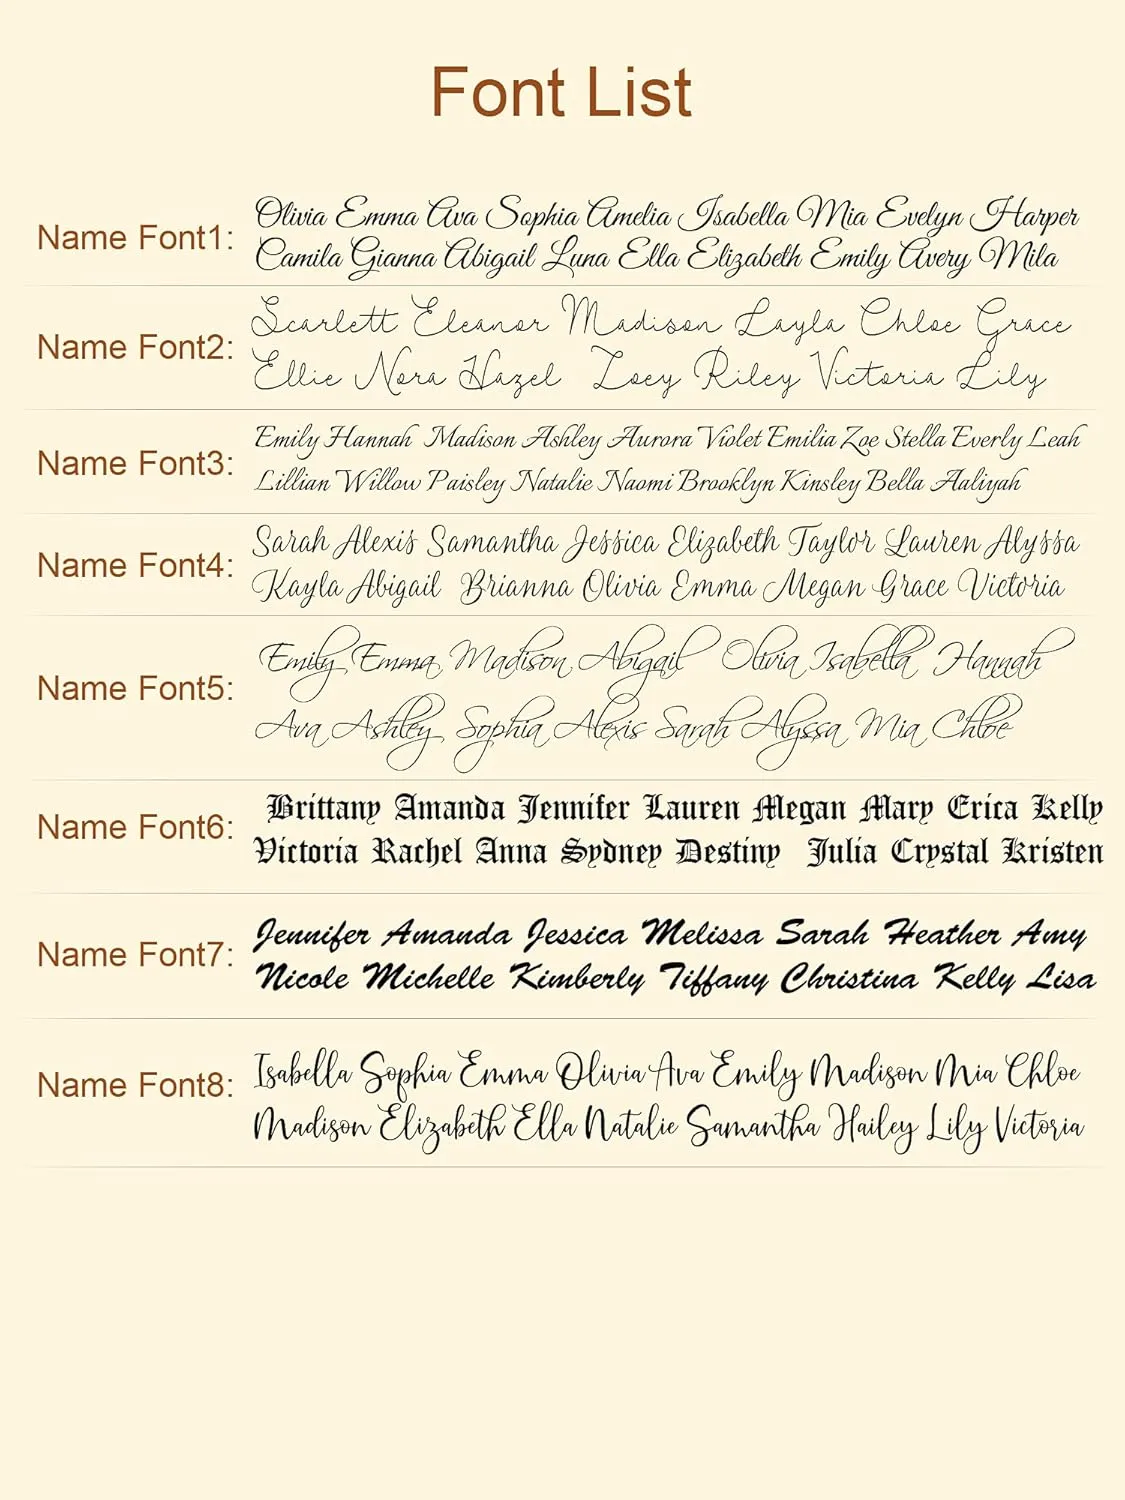 Font List
Name Font1:
Olivia Emma Ava Sophia Amelia Isabella Mia Evelyn Harper
Camila Gianna Abigail Luna Ella Elizabeth Emily Avery Mila
Name Font2:
Scarlett Eleanor Madison Layla Chloe Grace
Ellie Nora Hazel Zoey Riley Victoria Lily
Name Font3:
Emily Hannah Madison Ashley Aurora Violet Emilia Zoe Stella Everly Leah
Lillian Willow Paisley Natalie Naomi Brooklyn Kinsley Bella Aaliyah
Name Font4:
Sarah Alexis Samantha Jessica Elizabeth Taylor Lauren Alyssa
Kayla Abigail Brianna Olivia Emma Megan Grace Victoria
Name Font5:
Emily Emma Madison Abigail Olivia Isabella Hannah
Ava Ashley Sophia Alexis Sarah Alyssa Mia Chloe
Name Font6:
Brittany Amanda Jennifer Lauren Megan Mary Erica Kelly
Victoria Rachel Anna Sydney Destiny Julia Crystal Kristen
Name Font7:
Jennifer Amanda Jessica Melissa Sarah Heather Amy
Nicole Michelle Kimberly Tiffany Christina Kelly Lisa
Name Font8:
Isabella Sophia Emma Olivia Ava Emily Madison Mia Chloe
Madison Elizabeth Ella Natalie Samantha Hailey Lily Victoria